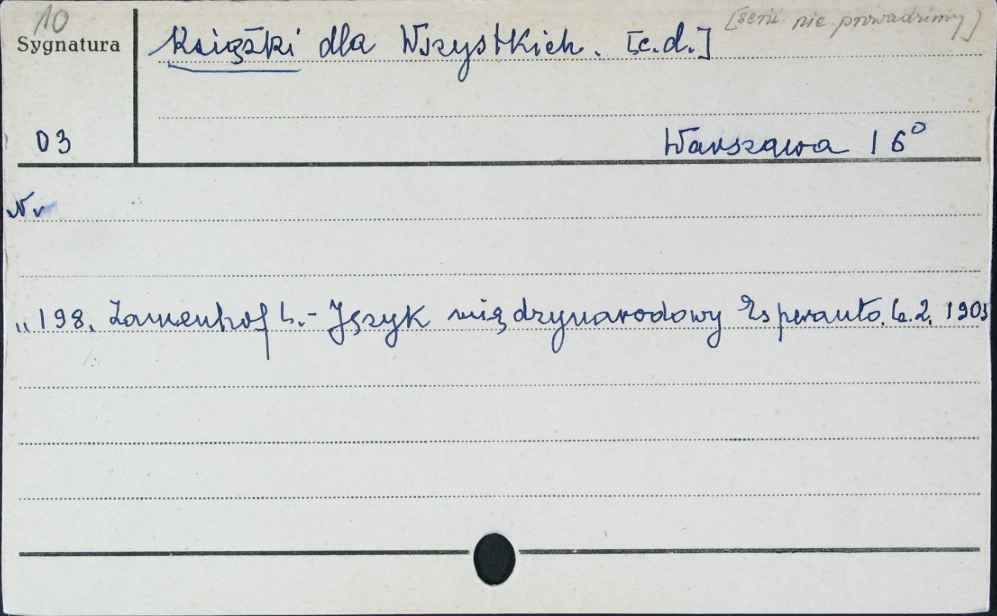 10
[serii nie prowadzimy]
Sygnatura
Książki dla Wszystkich. [c.d.]
D3
Warszawa 16°
Nr
„198. Zamenhof L.- Język międzynarodowy Esperanto. Cz.2. 1905